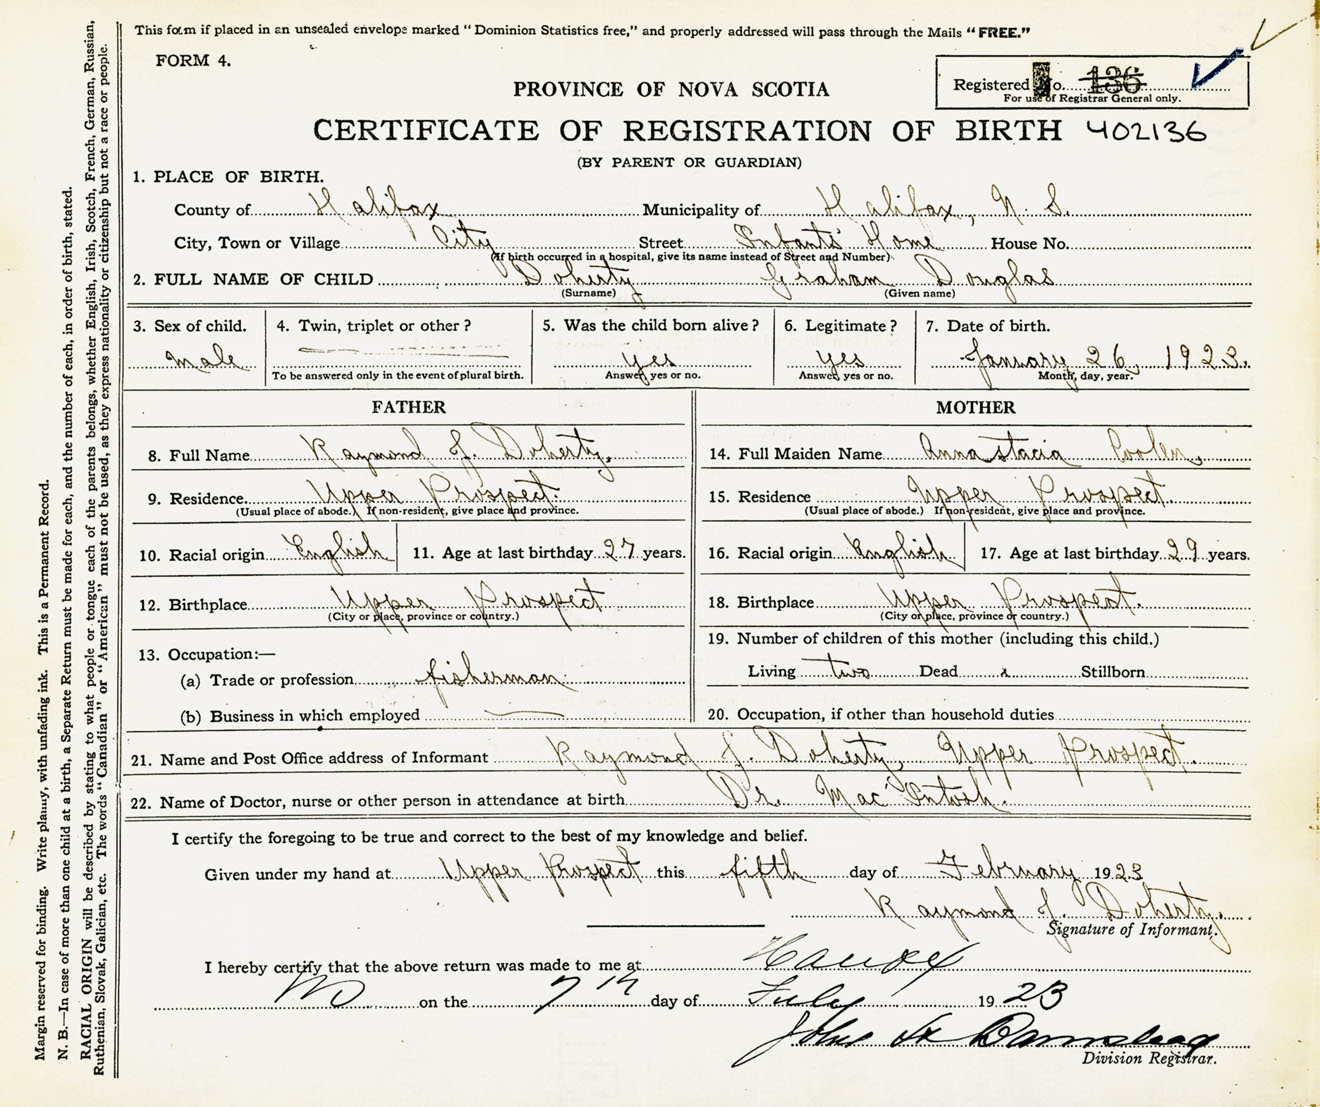 This form if placed in an unsealed envelope marked "Dominion Statistics free," and properly addressed will pass through the Mails "FREE."
FORM 4.
Registered No. 136
For use of Registrar General only.
PROVINCE OF NOVA SCOTIA
CERTIFICATE OF REGISTRATION OF BIRTH 402136
(BY PARENT OR GUARDIAN)
1. PLACE OF BIRTH.
County of Halifax Municipality of Halifax, N. S.
City, Town or Village City Street Infants' Home House No.
(If birth occurred in a hospital, give its name instead of Street and Number)
2. FULL NAME OF CHILD Doherty Graham Douglas
(Surname) (Given name)
3. Sex of child. 4. Twin, triplet or other? 5. Was the child born alive? 6. Legitimate? 7. Date of birth.
male yes yes January 26, 1923.
To be answered only in the event of plural birth. Answer, yes or no. Answer, yes or no. Month, day, year.
FATHER MOTHER
8. Full Name Raymond J. Doherty. 14. Full Maiden Name Annastacia Coolen.
9. Residence Upper Prospect. 15. Residence Upper Prospect.
(Usual place of abode.) If non-resident, give place and province. (Usual place of abode.) If non-resident, give place and province.
10. Racial origin English 11. Age at last birthday 27 years. 16. Racial origin English 17. Age at last birthday 29 years.
12. Birthplace Upper Prospect 18. Birthplace Upper Prospect.
(City or place, province or country.) (City or place, province or country.)
19. Number of children of this mother (including this child.)
13. Occupation:—
Living two Dead x Stillborn
(a) Trade or profession fisherman.
(b) Business in which employed 20. Occupation, if other than household duties
21. Name and Post Office address of Informant Raymond J. Doherty, Upper Prospect.
22. Name of Doctor, nurse or other person in attendance at birth Dr. MacIntosh.
I certify the foregoing to be true and correct to the best of my knowledge and belief.
Given under my hand at Upper Prospect this fifth day of February 1923
Raymond J. Doherty.
Signature of Informant.
I hereby certify that the above return was made to me at
on the 7th day of July 1923
John
Division Registrar.
Margin reserved for binding. Write plainly, with unfading ink. This is a Permanent Record.
N. B.—In case of more than one child at a birth, a Separate Return must be made for each, and the number of each, in order of birth, stated.
RACIAL ORIGIN will be described by stating to what people or tongue each of the parents belongs, whether English, Irish, Scotch, French, German, Russian,
Ruthenian, Slovak, Galician, etc. The words "Canadian" or "American" must not be used, as they express nationality or citizenship but not a race or people.